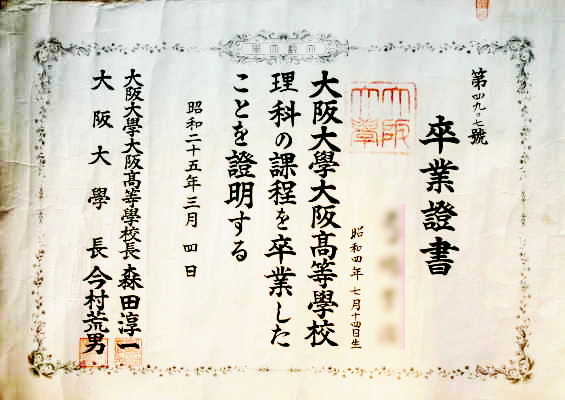 第四九〇七號
卒業證書
昭和四年七月十四日生
大阪大學大阪高等學校
理科の課程を卒業した
ことを證明する
昭和二十五年三月四日
大阪大學大阪高等學校長 森田淳一
大阪大學長 今村荒男